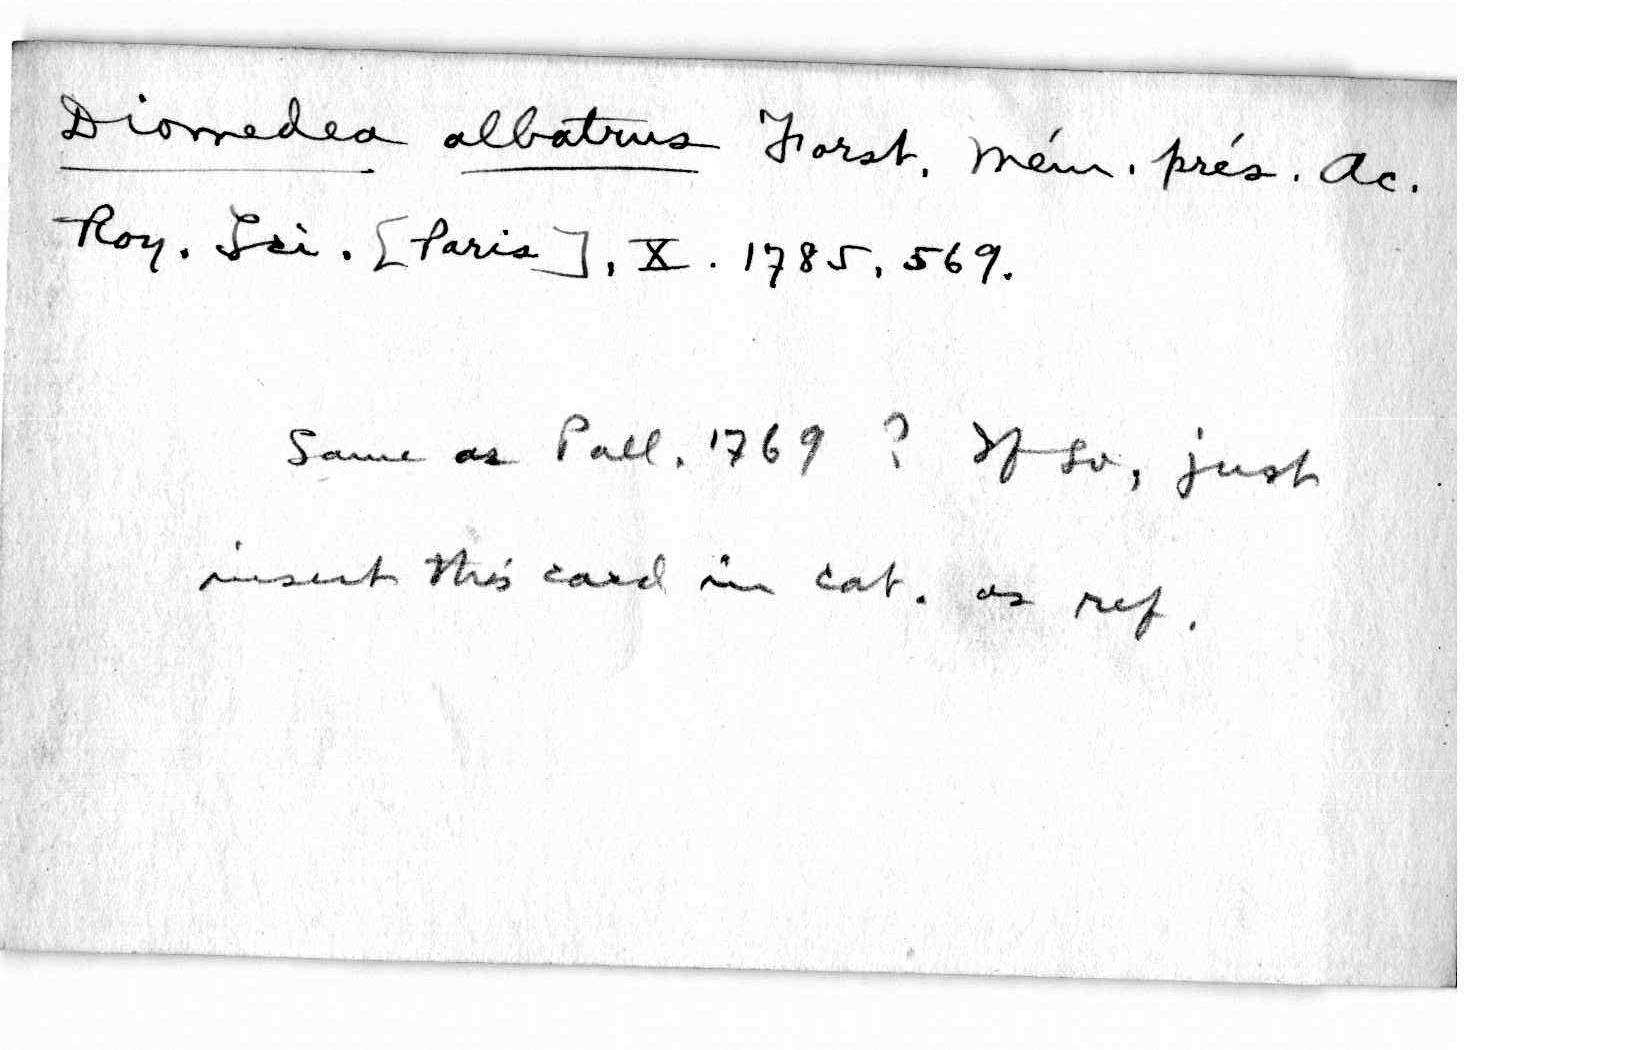 Diomedea albatrus Forst. Mém. prés. Ac.
Roy. Sci. [Paris], X. 1785, 569.
Same as Pall. 1769 ? If so, just
insert this card in cat. as ref.